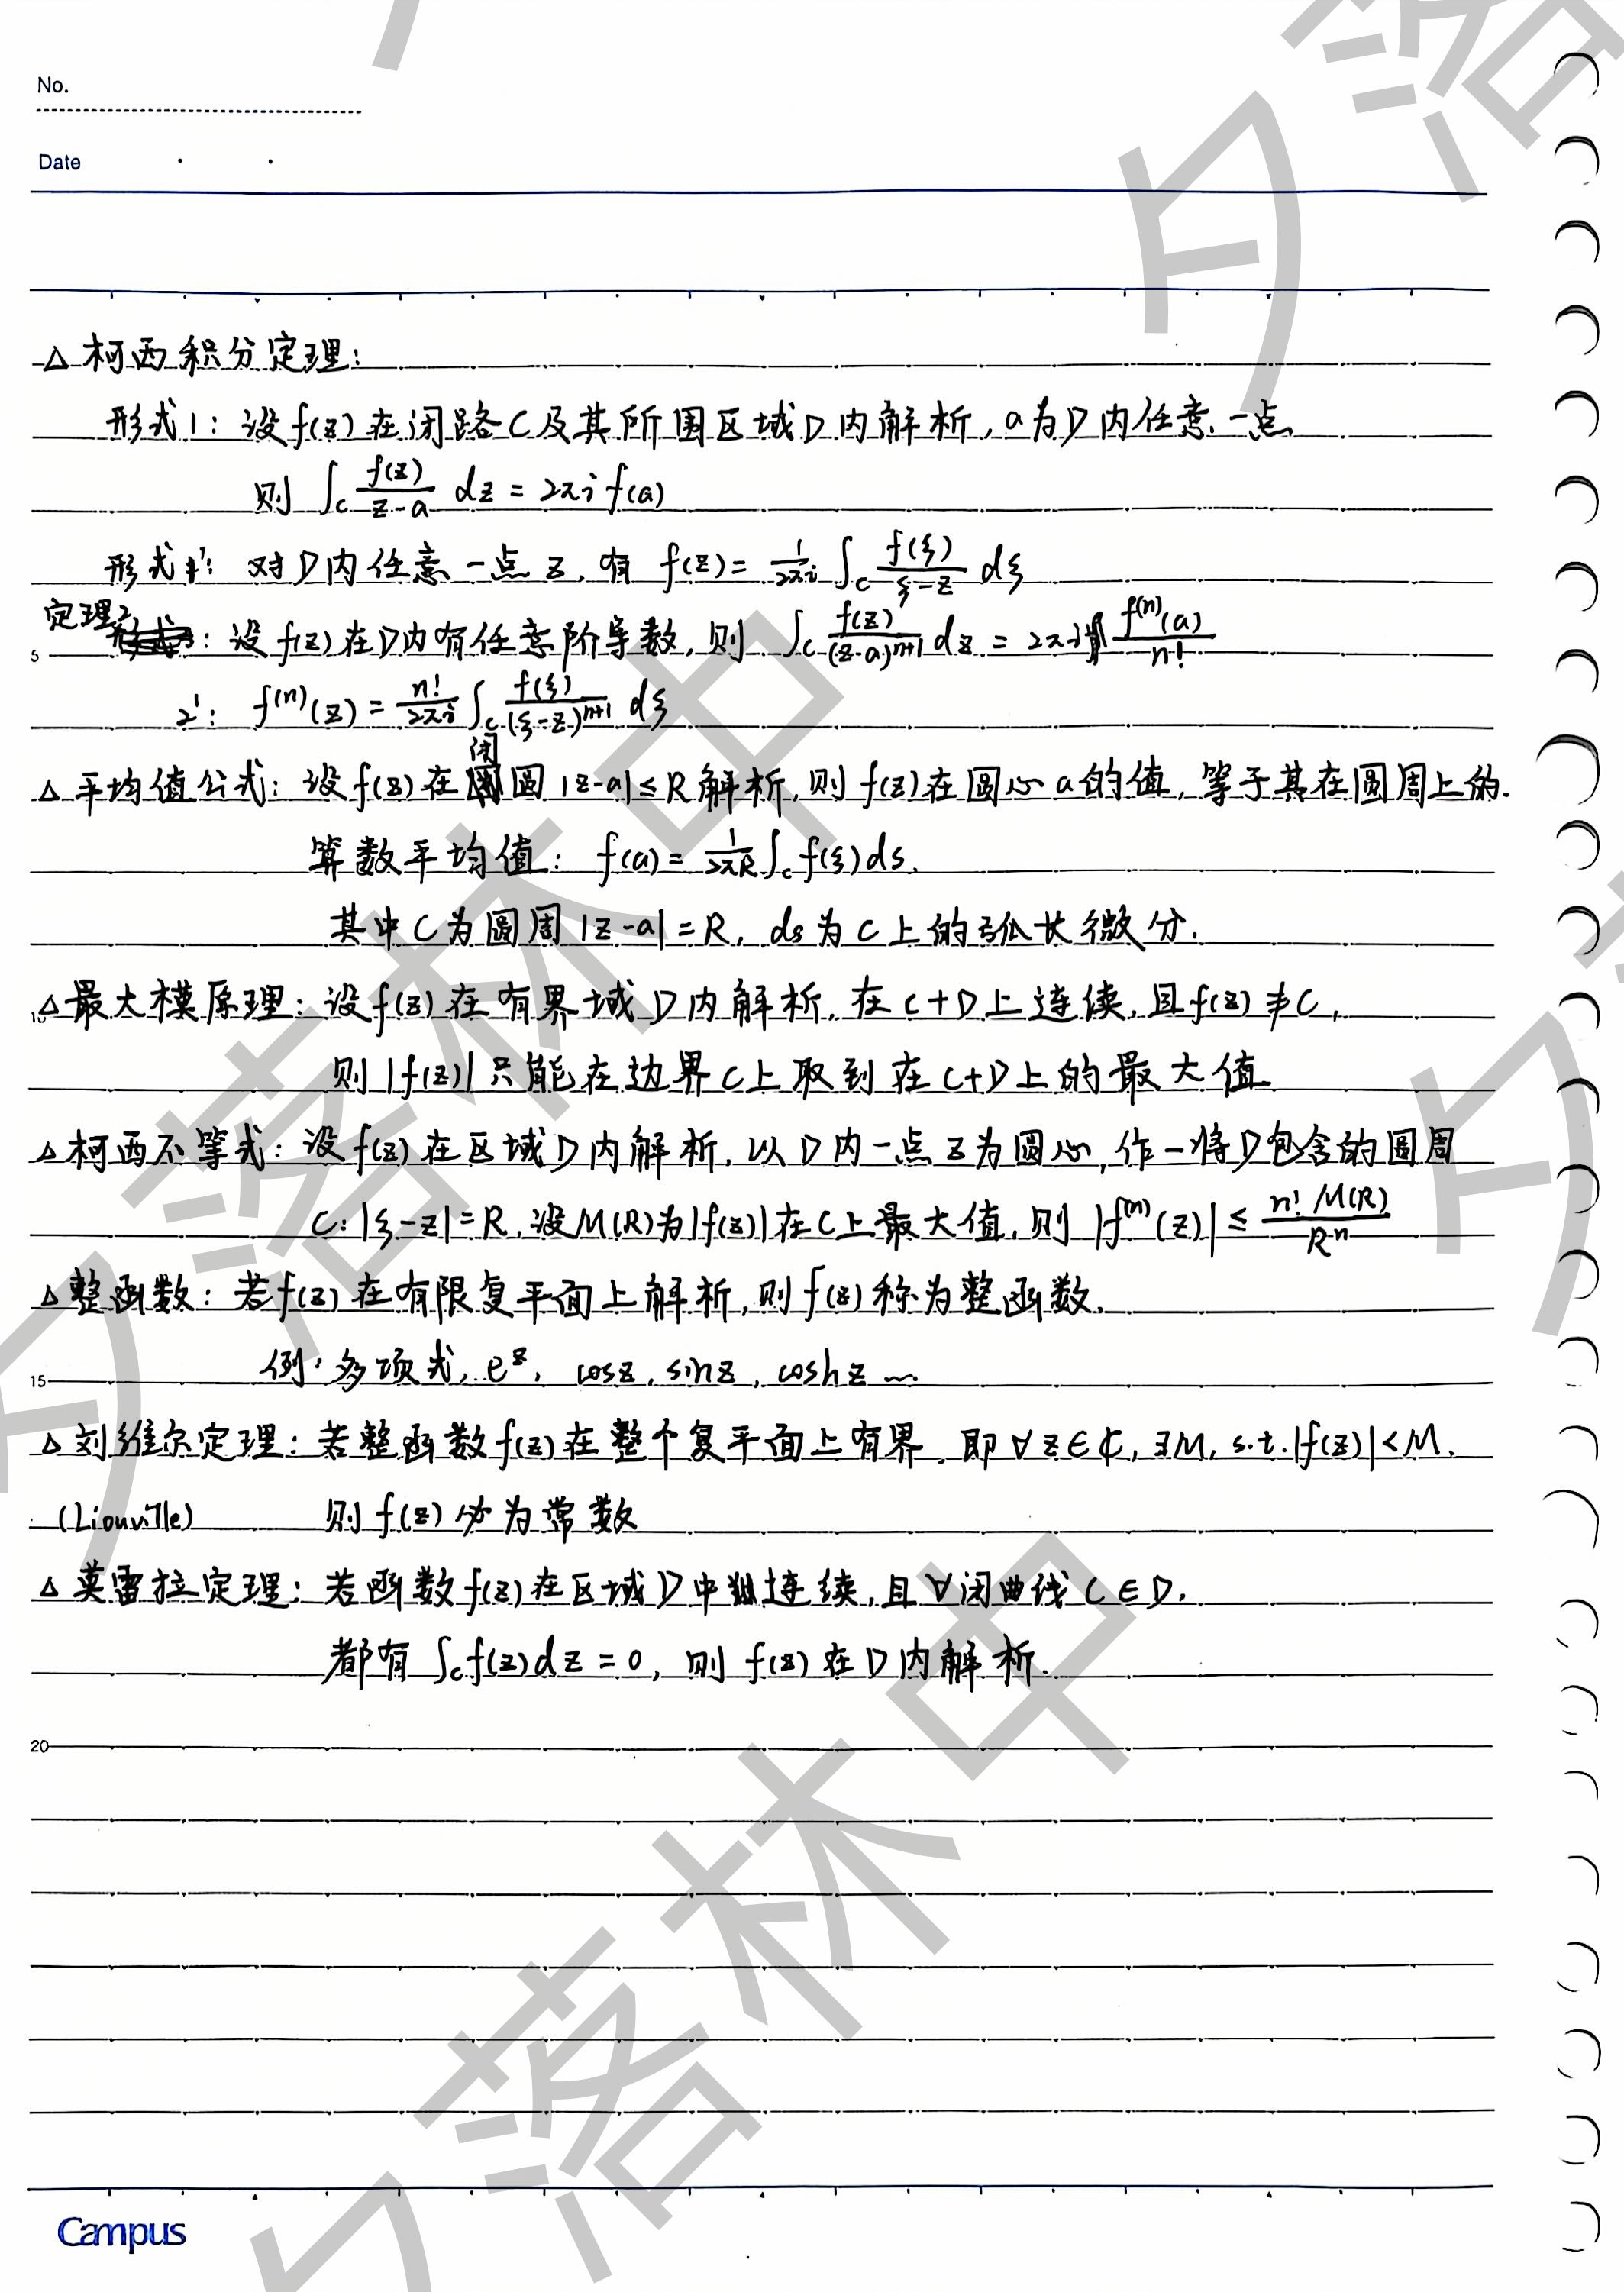 No.
Date
△ 柯西积分定理:
形式1: 设f(z)在闭路C及其所围区域D内解析, a为D内任意一点
则 ∫_C f(z)/(z-a) dz = 2πi f(a)
形式1': 对D内任意一点z, 有 f(z) = 1/(2πi) ∫_C f(ξ)/(ξ-z) dξ
定理2: 设f(z)在D内有任意阶导数, 则 ∫_C f(z)/(z-a)^{n+1} dz = 2πi f^{(n)}(a)/n!
5
2': f^{(n)}(z) = n!/(2πi) ∫_C f(ξ)/(ξ-z)^{n+1} dξ
△ 平均值公式: 设f(z)在闭圆|z-a|≤R解析, 则f(z)在圆心a的值, 等于其在圆周上的.
算数平均值: f(a) = 1/(2πR) ∫_C f(ξ)ds.
其中C为圆周|z-a|=R, ds为C上的弧长微分.
10
△ 最大模原理: 设f(z)在有界域D内解析, 在C+D上连续, 且f(z)≢C,
则|f(z)|只能在边界C上取到在C+D上的最大值
△ 柯西不等式: 设f(z)在区域D内解析, 以D内一点z为圆心, 作一将D包含的圆周
C: |ξ-z|=R, 设M(R)为|f(z)|在C上最大值, 则 |f^{(n)}(z)| ≤ n! M(R)/R^n
△ 整函数: 若f(z)在有限复平面上解析, 则f(z)称为整函数.
15
例: 多项式, e^z, cosz, sinz, coshz ...
△ 刘维尔定理: 若整函数f(z)在整个复平面上有界, 即∀z∈ℂ, ∃M, s.t.|f(z)|<M.
(Liouville) 则f(z)必为常数
△ 莫雷拉定理: 若函数f(z)在区域D中连续, 且∀闭曲线C∈D,
都有 ∫_C f(z)dz=0, 则f(z)在D内解析.
20
Campus
夕落林中
夕落林中
夕落
夕落